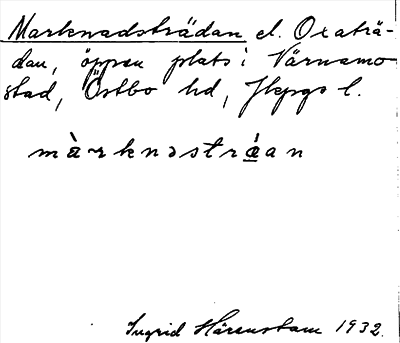 Marknadsträdan el. Oxaträ-
dan, öppen plats i Värnamo
stad, Östbo hd, Jkpgs l.
màrknəstráan
Ingrid Härenstam 1932.